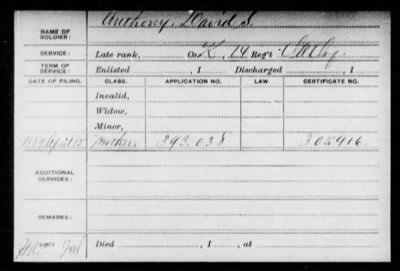 NAME OF SOLDIER: Anthony, David S.
SERVICE: Late rank, Co. K, 14 Reg't
TERM OF SERVICE: Enlisted , 1 Discharged , 1
DATE OF FILING. CLASS. APPLICATION NO. LAW. CERTIFICATE NO.
Invalid,
Widow,
Minor,
April 15 Mother 393.028 305916
ADDITIONAL SERVICES:
REMARKS:
Died , 1 , at